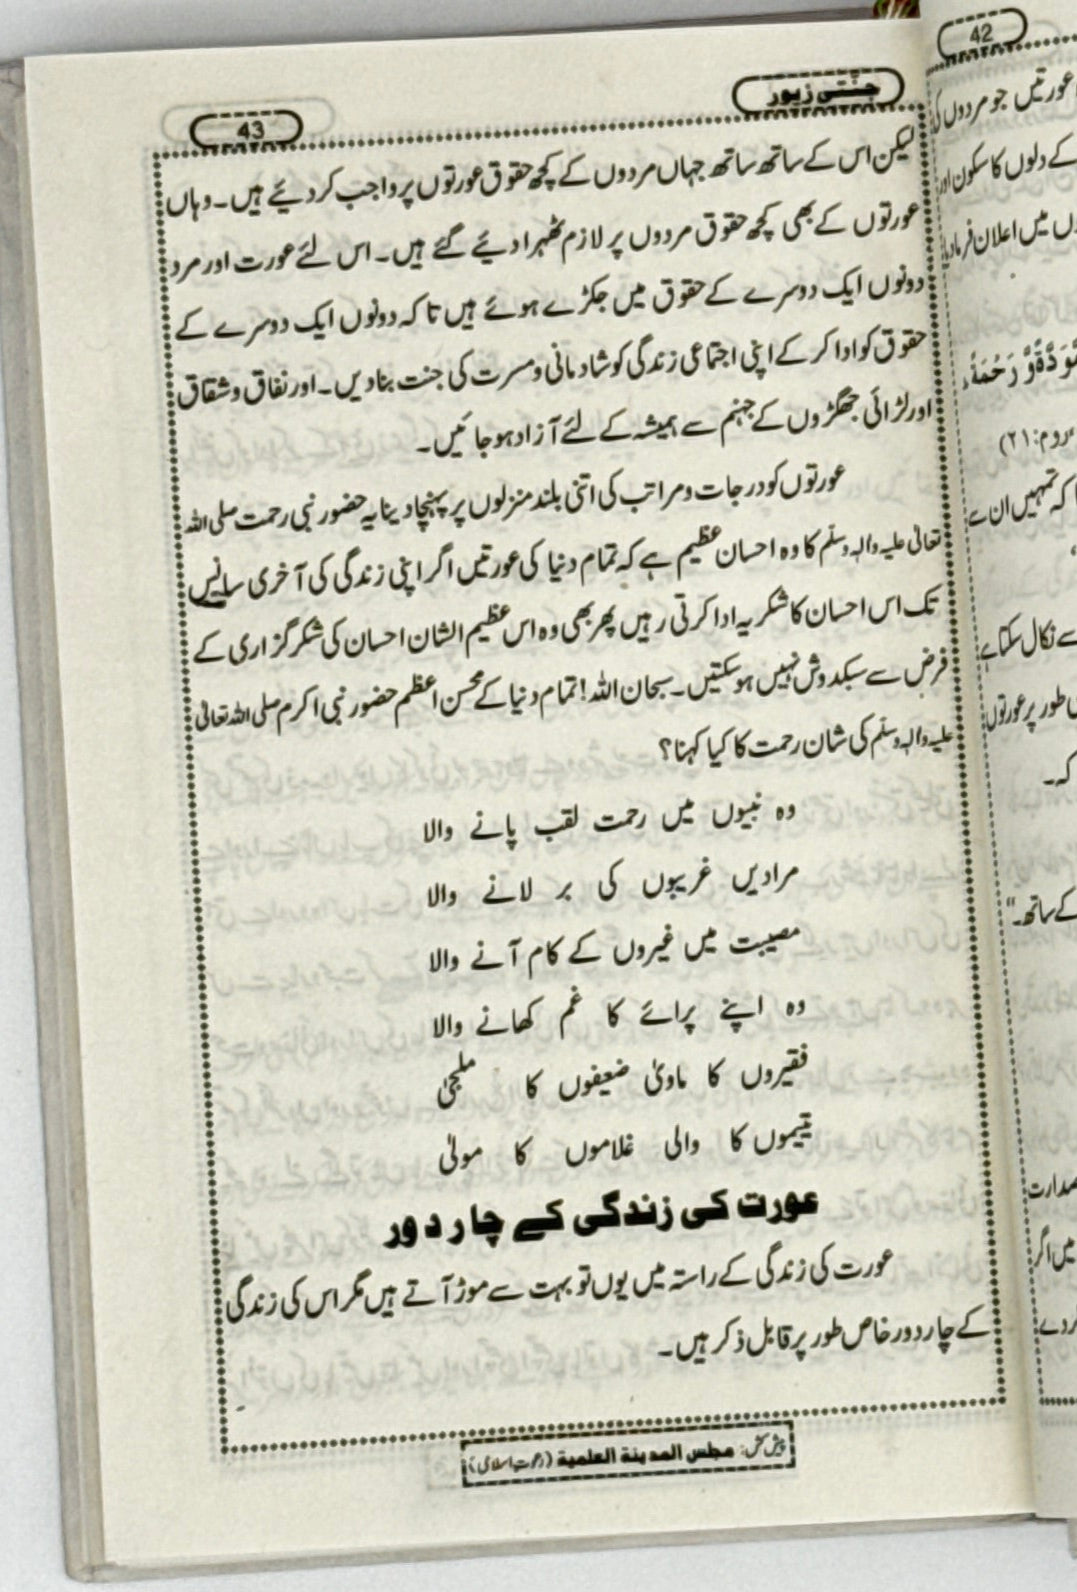 جنتی زیور
43
لیکن اس کے ساتھ ساتھ جہاں مردوں کے کچھ حقوق عورتوں پر واجب کر دیئے ہیں۔ وہاں
عورتوں کے بھی کچھ حقوق مردوں پر لازم ٹھہرا دیئے گئے ہیں۔ اس لئے عورت اور مرد
دونوں ایک دوسرے کے حقوق میں جکڑے ہوئے ہیں تاکہ دونوں ایک دوسرے کے
حقوق کو ادا کر کے اپنی اجتماعی زندگی کو شادمانی و مسرت کی جنت بنا دیں۔ اور نفاق و شقاق
اور لڑائی جھگڑوں کے جہنم سے ہمیشہ کے لئے آزاد ہو جائیں۔
عورتوں کو درجات و مراتب کی اتنی بلند منزلوں پر پہنچا دینا یہ حضور نبی رحمت صلی اللہ
تعالیٰ علیہ والہ وسلم کا وہ احسان عظیم ہے کہ تمام دنیا کی عورتیں اگر اپنی زندگی کی آخری سانس
تک اس احسان کا شکریہ ادا کرتی رہیں پھر بھی وہ اس عظیم الشان احسان کی شکر گزاری کے
فرض سے سبکدوش نہیں ہو سکتیں۔ سبحان اللہ! تمام دنیا کے محسن اعظم حضور نبی اکرم صلی اللہ تعالیٰ
علیہ والہ وسلم کی شان رحمت کا کیا کہنا؟
وہ نبیوں میں رحمت لقب پانے والا
مرادیں غریبوں کی بر لانے والا
مصیبت میں غیروں کے کام آنے والا
وہ اپنے پرائے کا غم کھانے والا
فقیروں کا ماویٰ ضعیفوں کا ملجیٰ
یتیموں کا والی غلاموں کا مولیٰ
عورت کی زندگی کے چار دور
عورت کی زندگی کے راستہ میں یوں تو بہت سے موڑ آتے ہیں مگر اس کی زندگی
کے چار دور خاص طور پر قابل ذکر ہیں۔
پیش کش: مجلس المدینة العلمیة (دعوت اسلامی)
42
عورتیں جو مردوں کی
کے دلوں کا سکون اور
میں اعلان فرما دیا
مَّوَدَّةً وَّ رَحْمَةً
روم: ۲۱)
کہ تمہیں ان سے
سے نکال سکتا ہے
طور پر عورتوں
کہ۔
کے ساتھ۔"
میں اگر
کردے